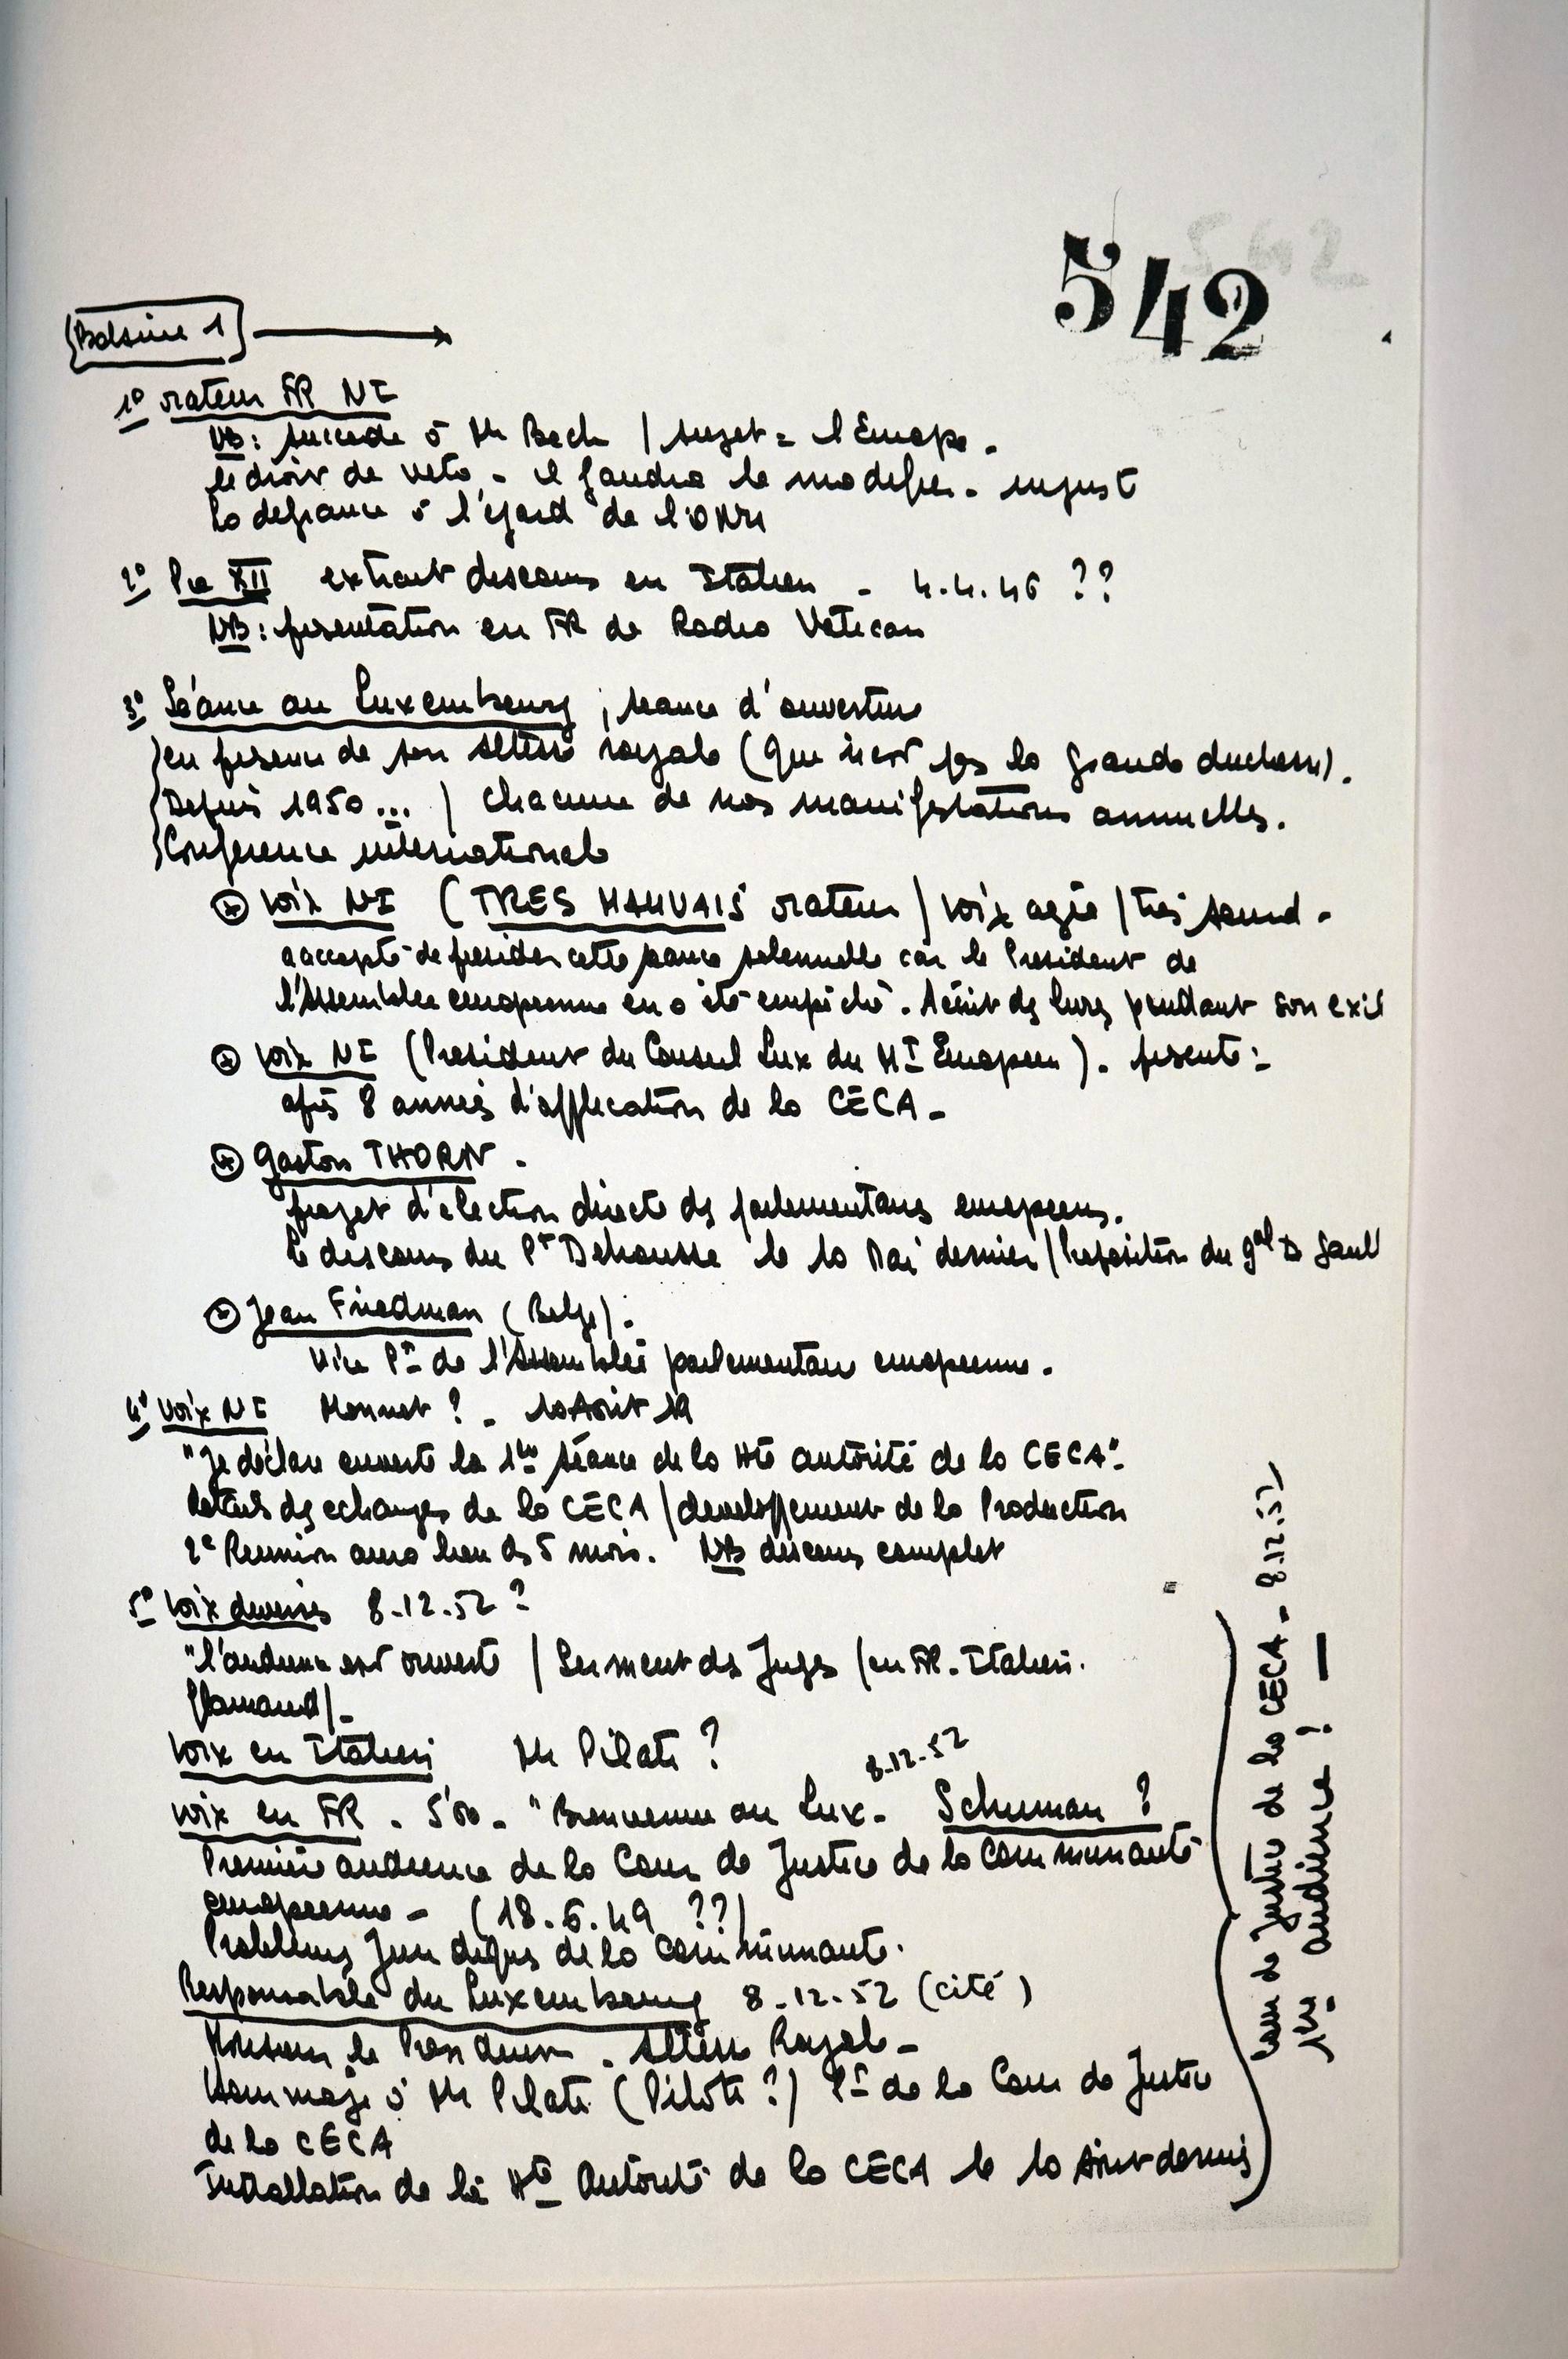 542
Bobine 1
1° orateur FR NI
NB: succède à Mr Bech / sujet = l'Europe.
le droit de veto. il faudra le modifier. injust
la defiance à l'égard de l'ONU
2° Pie XII extrait discours en Italien - 4.4.46 ??
NB: presentation en FR de Radio Vatican
3° Séance au Luxembourg, séance d'ouverture
en presence de son altesse royale (qui n'est pas la grande duchesse).
Depuis 1950... / chacune de nos manifestations annuelles.
Conference internationale
voix NI (TRES MAUVAIS orateur / voix agée / très sourd -
a accepté de presider cette seance solennelle car le President de
l'Assemblée europeenne en a été empêché. A écrit des livres pendant son exil
voix NI (President du Conseil Lux du Mt Europeen). presente:
après 8 années d'application de la CECA -
Gaston THORN.
projet d'élection directe des parlementaires europeens.
le discours du Pt Dehousse le 10 Mai dernier / Proposition du gal De Gaull
Jean Friedman (Belge):
Vice Pt de l'Assemblée parlementaire europeenne.
4° Voix NI Monnet ? - 10 Août 19
"Je déclare ouverte la 1ère séance de la Hte autorité de la CECA"-
details des echanges de la CECA / developpement de la Production
2e Reunion aura lieu ds 5 mois. NB discours complet
5° Voix diverses 8.12.52 ?
"l'audience est ouverte / Serment des Juges (en FR. Italien.
flamand) -
Voix en Italien Mr Pilati ?
8.12.52
voix en FR. 5'00 - "Bienvenue au Lux - Schuman ?
Premiere audience de la Cour de Justice de la communauté
europeenne - (18.6.49 ??)
Problemes Juridiques de la communauté.
Responsable du Luxembourg 8.12.52 (cité)
Monsieur le President. Altesse Royale -
Hommage à Mr Pilati (Piloti ?) Pt de la Cour de Justice
de la CECA
Installation de la Hte Autorité de la CECA le 10 Août dernier
Cour de Justice de la CECA - 8.12.52
1ère audience !